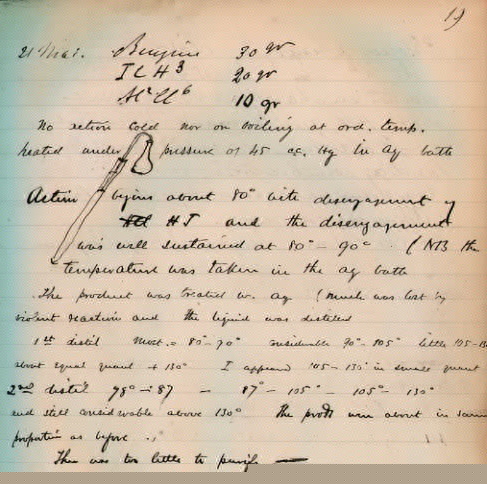 19
21 Mai. Benzine 30 gr
I C H³ 20 gr
Al² Cl⁶ 10 gr
No action cold nor on boiling at ord. temp.
heated under pressure of 45 cc. Hg in aq bath
Action begins about 80° with disengagement of
HI and the disengagement
was well sustained at 80° – 90° . (NB the
temperature was taken in the aq bath
The product was treated w. aq (much was lost by
violent reaction and the liquid was distilled
1st distil most = 80°–90° considerable 90°–105° little 105–13
about equal quant + 130° I appeared 105–130° in small quant
2nd distil 78°–87 – 87°–105° – 105°– 130°
and still considerable above 130° The prods were about in same
proportion as before
There was too little to purify —